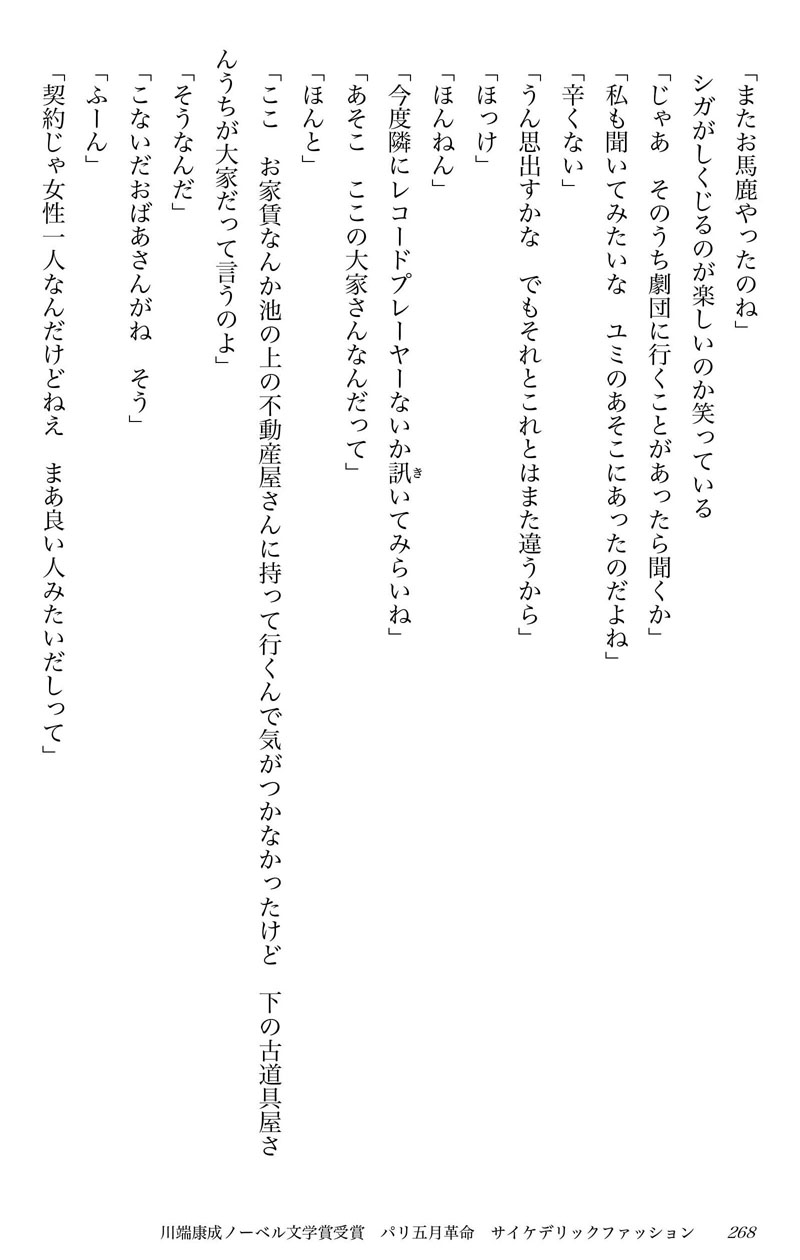 「またお馬鹿やったのね」
シガがしくじるのが楽しいのか笑っている
「じゃあ　そのうち劇団に行くことがあったら聞くか」
「私も聞いてみたいな　ユミのあそこにあったのだよね」
「辛くない」
「うん思出すかな　でもそれとこれとはまた違うから」
「ほっけ」
「ほんねん」
「今度隣にレコードプレーヤーないか訊いてみらいね」
き
「あそこ　ここの大家さんなんだって」
「ほんと」
「ここ　お家賃なんか池の上の不動産屋さんに持って行くんで気がつかなかったけど　下の古道具屋さ
んうちが大家だって言うのよ」
「そうなんだ」
「こないだおばあさんがね　そう」
「ふーん」
「契約じゃ女性一人なんだけどねえ　まあ良い人みたいだしって」
川端康成ノーベル文学賞受賞　パリ五月革命　サイケデリックファッション　268